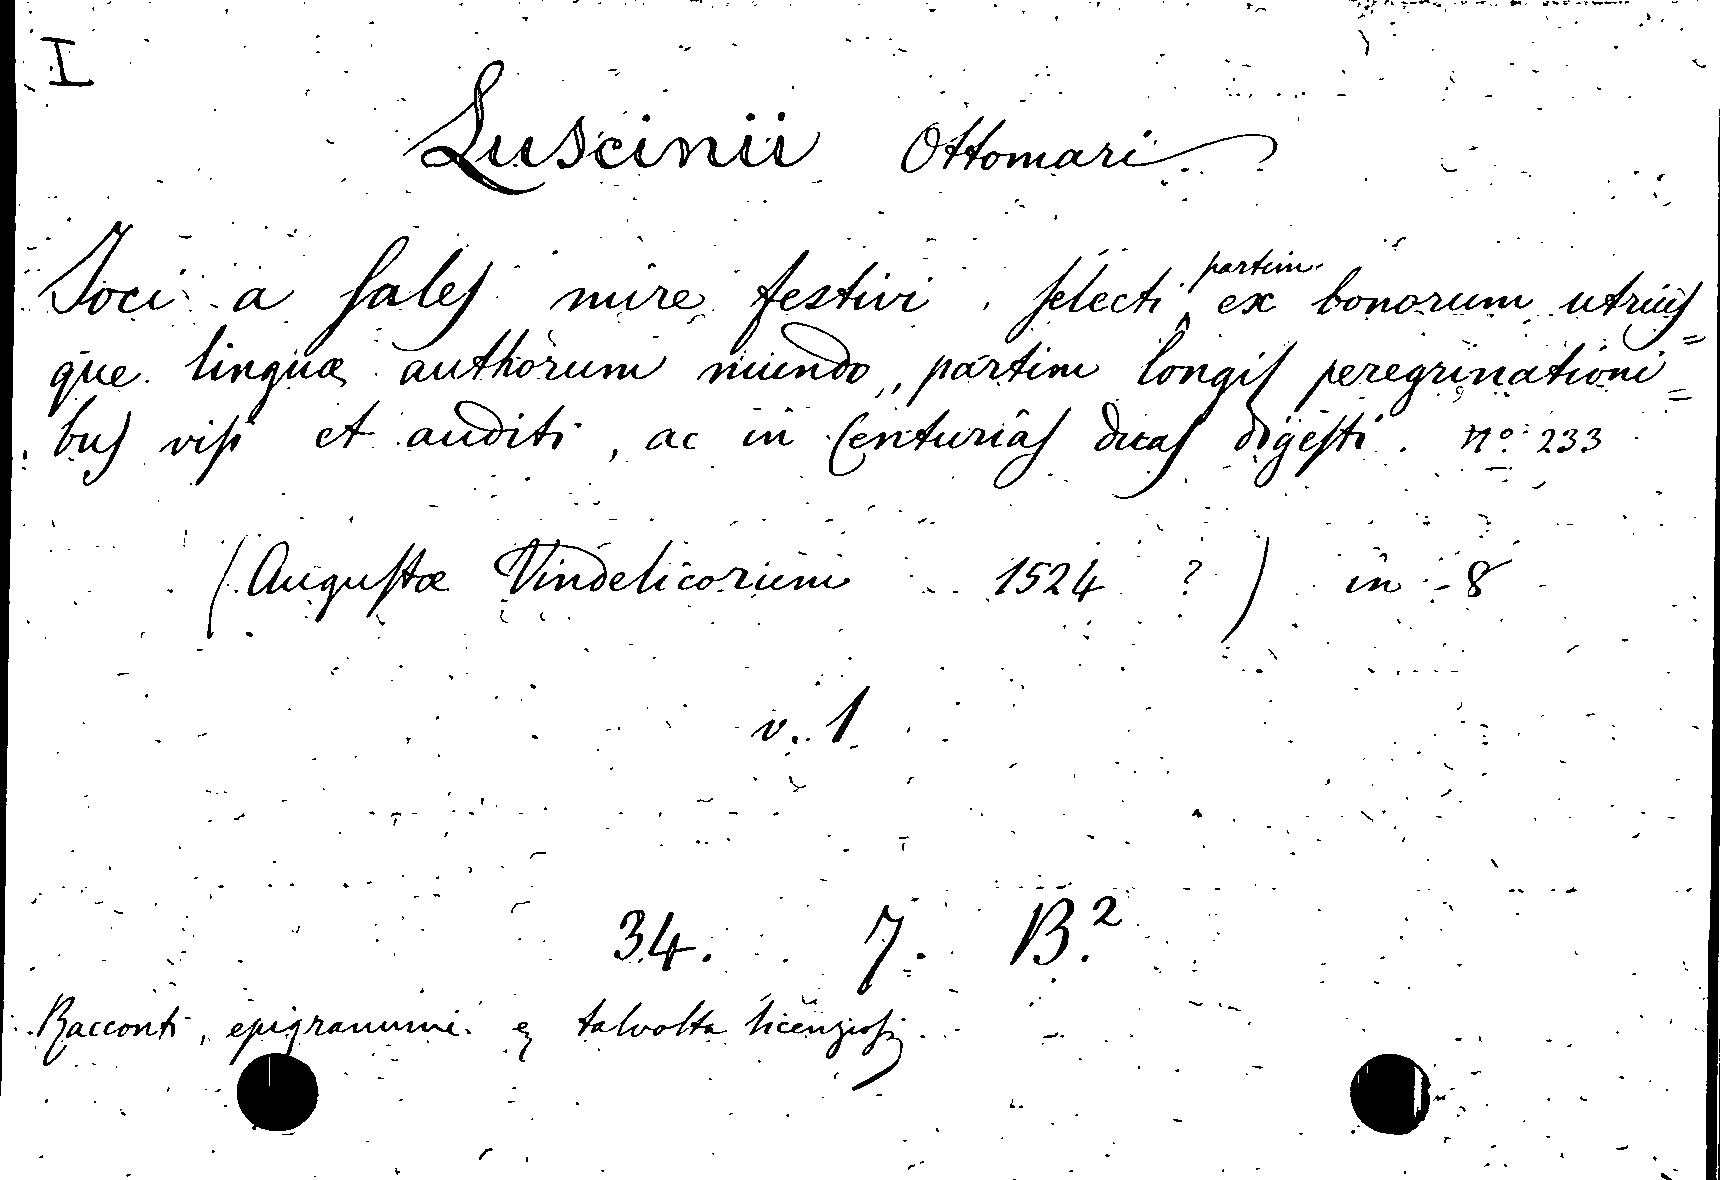 I
Luscinii Ottomari
Joci a sales mire festivi. selecti partim ex bonorum utrius=
que linguæ authorum mundo, partim longis peregrinationi=
bus visi et auditi, ac in Centurias duas digesti. Nº 233
(Augustæ Vindelicorum 1524 ?) in 8
v. 1
34. 7. B.²
Racconti, epigrammi e talvolta licenziosi